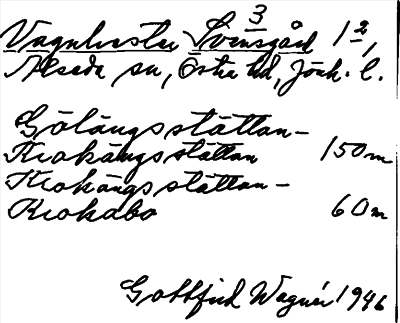 3
Vagnhester Svensgård 1 2,
Alseda sn, Östra hd, Jönk. l.
Gölängsstättan-
Krokängsstättan 150 m
Krokängsstättan-
Krokabo 60 m
Gottfrid Wagnér 1946